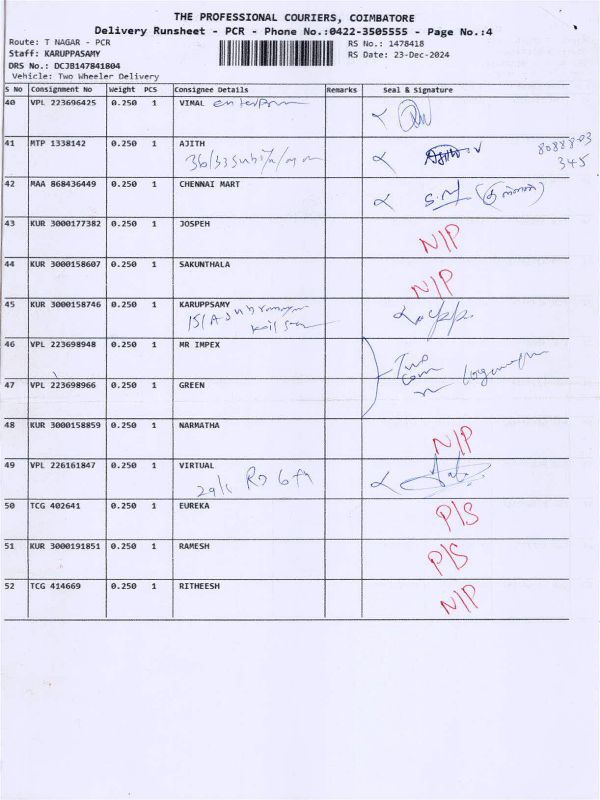 THE PROFESSIONAL COURIERS, COIMBATORE
Delivery Runsheet - PCR - Phone No.:0422-3505555 - Page No.:4
Route: T NAGAR - PCR RS No.: 1478418
Staff: KARUPPASAMY RS Date: 23-Dec-2024
DRS No.: DCJB147841804
Vehicle: Two Wheeler Delivery
S No Consignment No Weight PCS Consignee Details Remarks Seal & Signature
40 VPL 223696425 0.250 1 VIMAL
41 MTP 1338142 0.250 1 AJITH
8088803
345
42 MAA 868436449 0.250 1 CHENNAI MART
43 KUR 3000177382 0.250 1 JOSPEH N/P
44 KUR 3000158607 0.250 1 SAKUNTHALA N/P
45 KUR 3000158746 0.250 1 KARUPPSAMY
46 VPL 223698948 0.250 1 MR IMPEX
47 VPL 223698966 0.250 1 GREEN
48 KUR 3000158859 0.250 1 NARMATHA N/P
49 VPL 226161847 0.250 1 VIRTUAL
50 TCG 402641 0.250 1 EUREKA P/S
51 KUR 3000191851 0.250 1 RAMESH P/S
52 TCG 414669 0.250 1 RITHEESH N/P